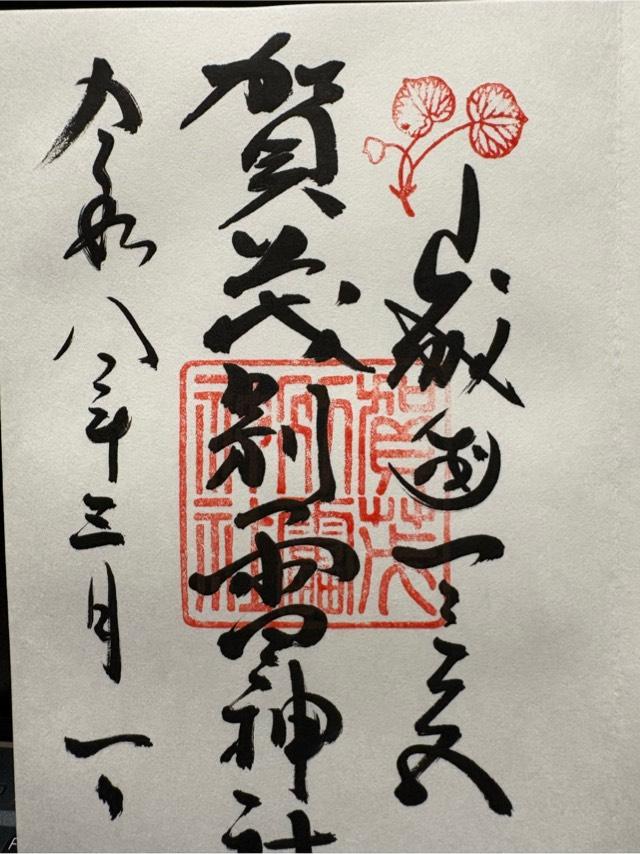 山城國一之宮
賀茂別雷神社
令和八年三月一日
賀茂
別雷
神社